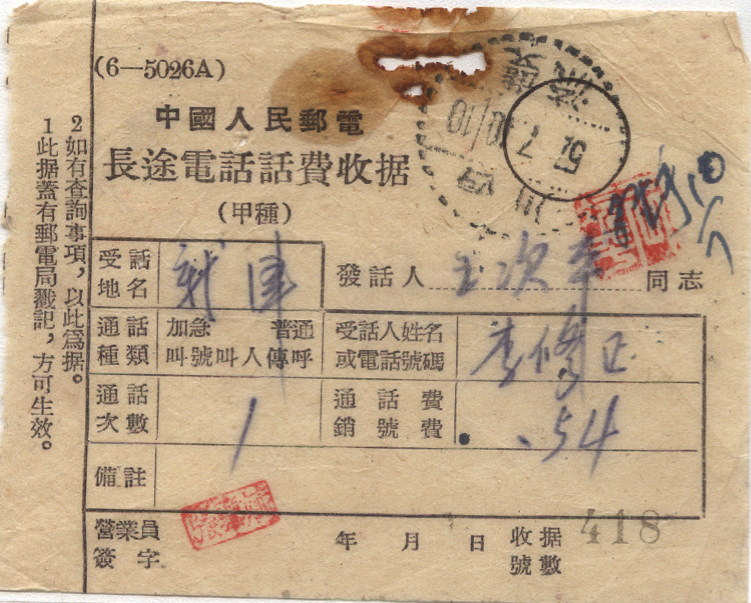 (6—5026A)
中國人民郵電
長途電話話費收据
(甲種)
2如有查詢事項，以此為据。
1此据蓋有郵電局戳記，方可生效。
受話地名
發話人 王次辛 同志
通話種類 加急 普通 叫號 叫人 傳呼
受話人姓名或電話號碼 李修正
通話次數 1
通話費 銷號費 .54
備註
營業員簽字
年 月 日 收据號數 418